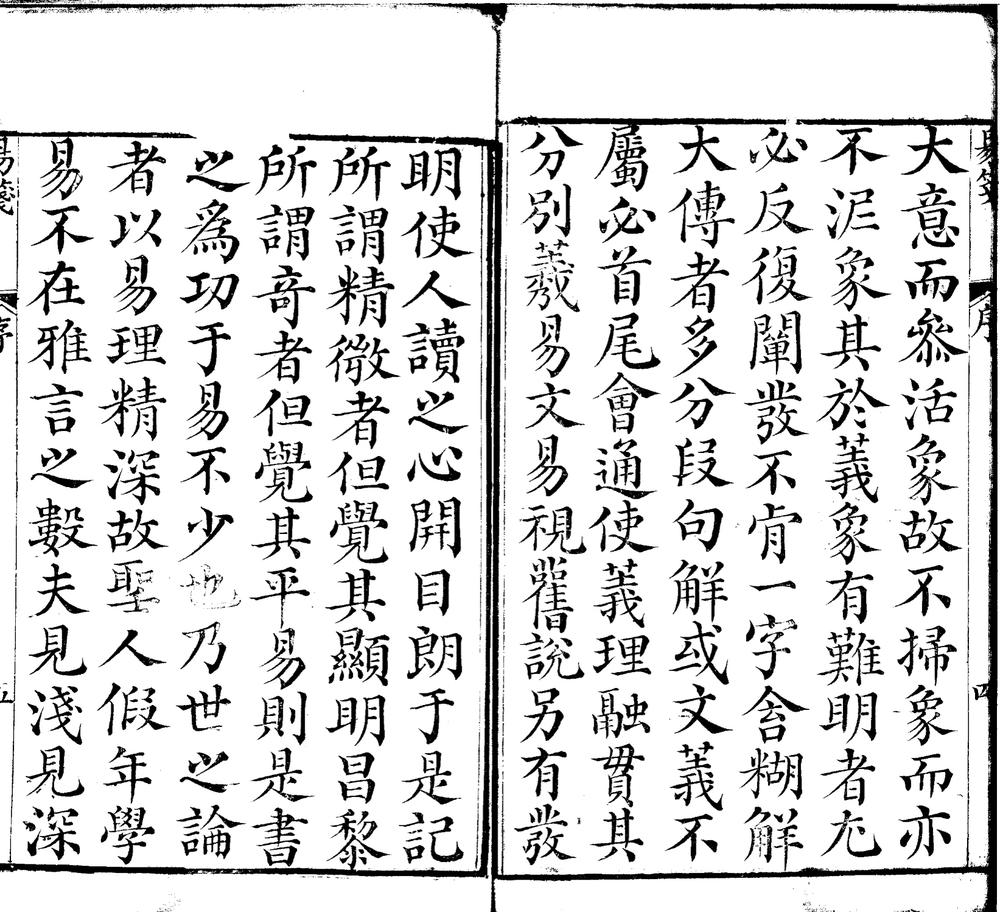 大意而叅活象故不掃象而亦
不泥象其於義象有難明者尤
必反復闡發不肯一字含糊解
大傳者多分段句解或文義不
屬必首尾會通使義理融貫其
分別羲易文易視舊說另有發
明使人讀之心開目朗于是記
所謂精微者但覺其顯明昌黎
所謂奇者但覺其平易則是書
之爲功于易不少也乃世之論
者以易理精深故聖人假年學
易不在雅言之數夫見淺見深
易箋
序
五